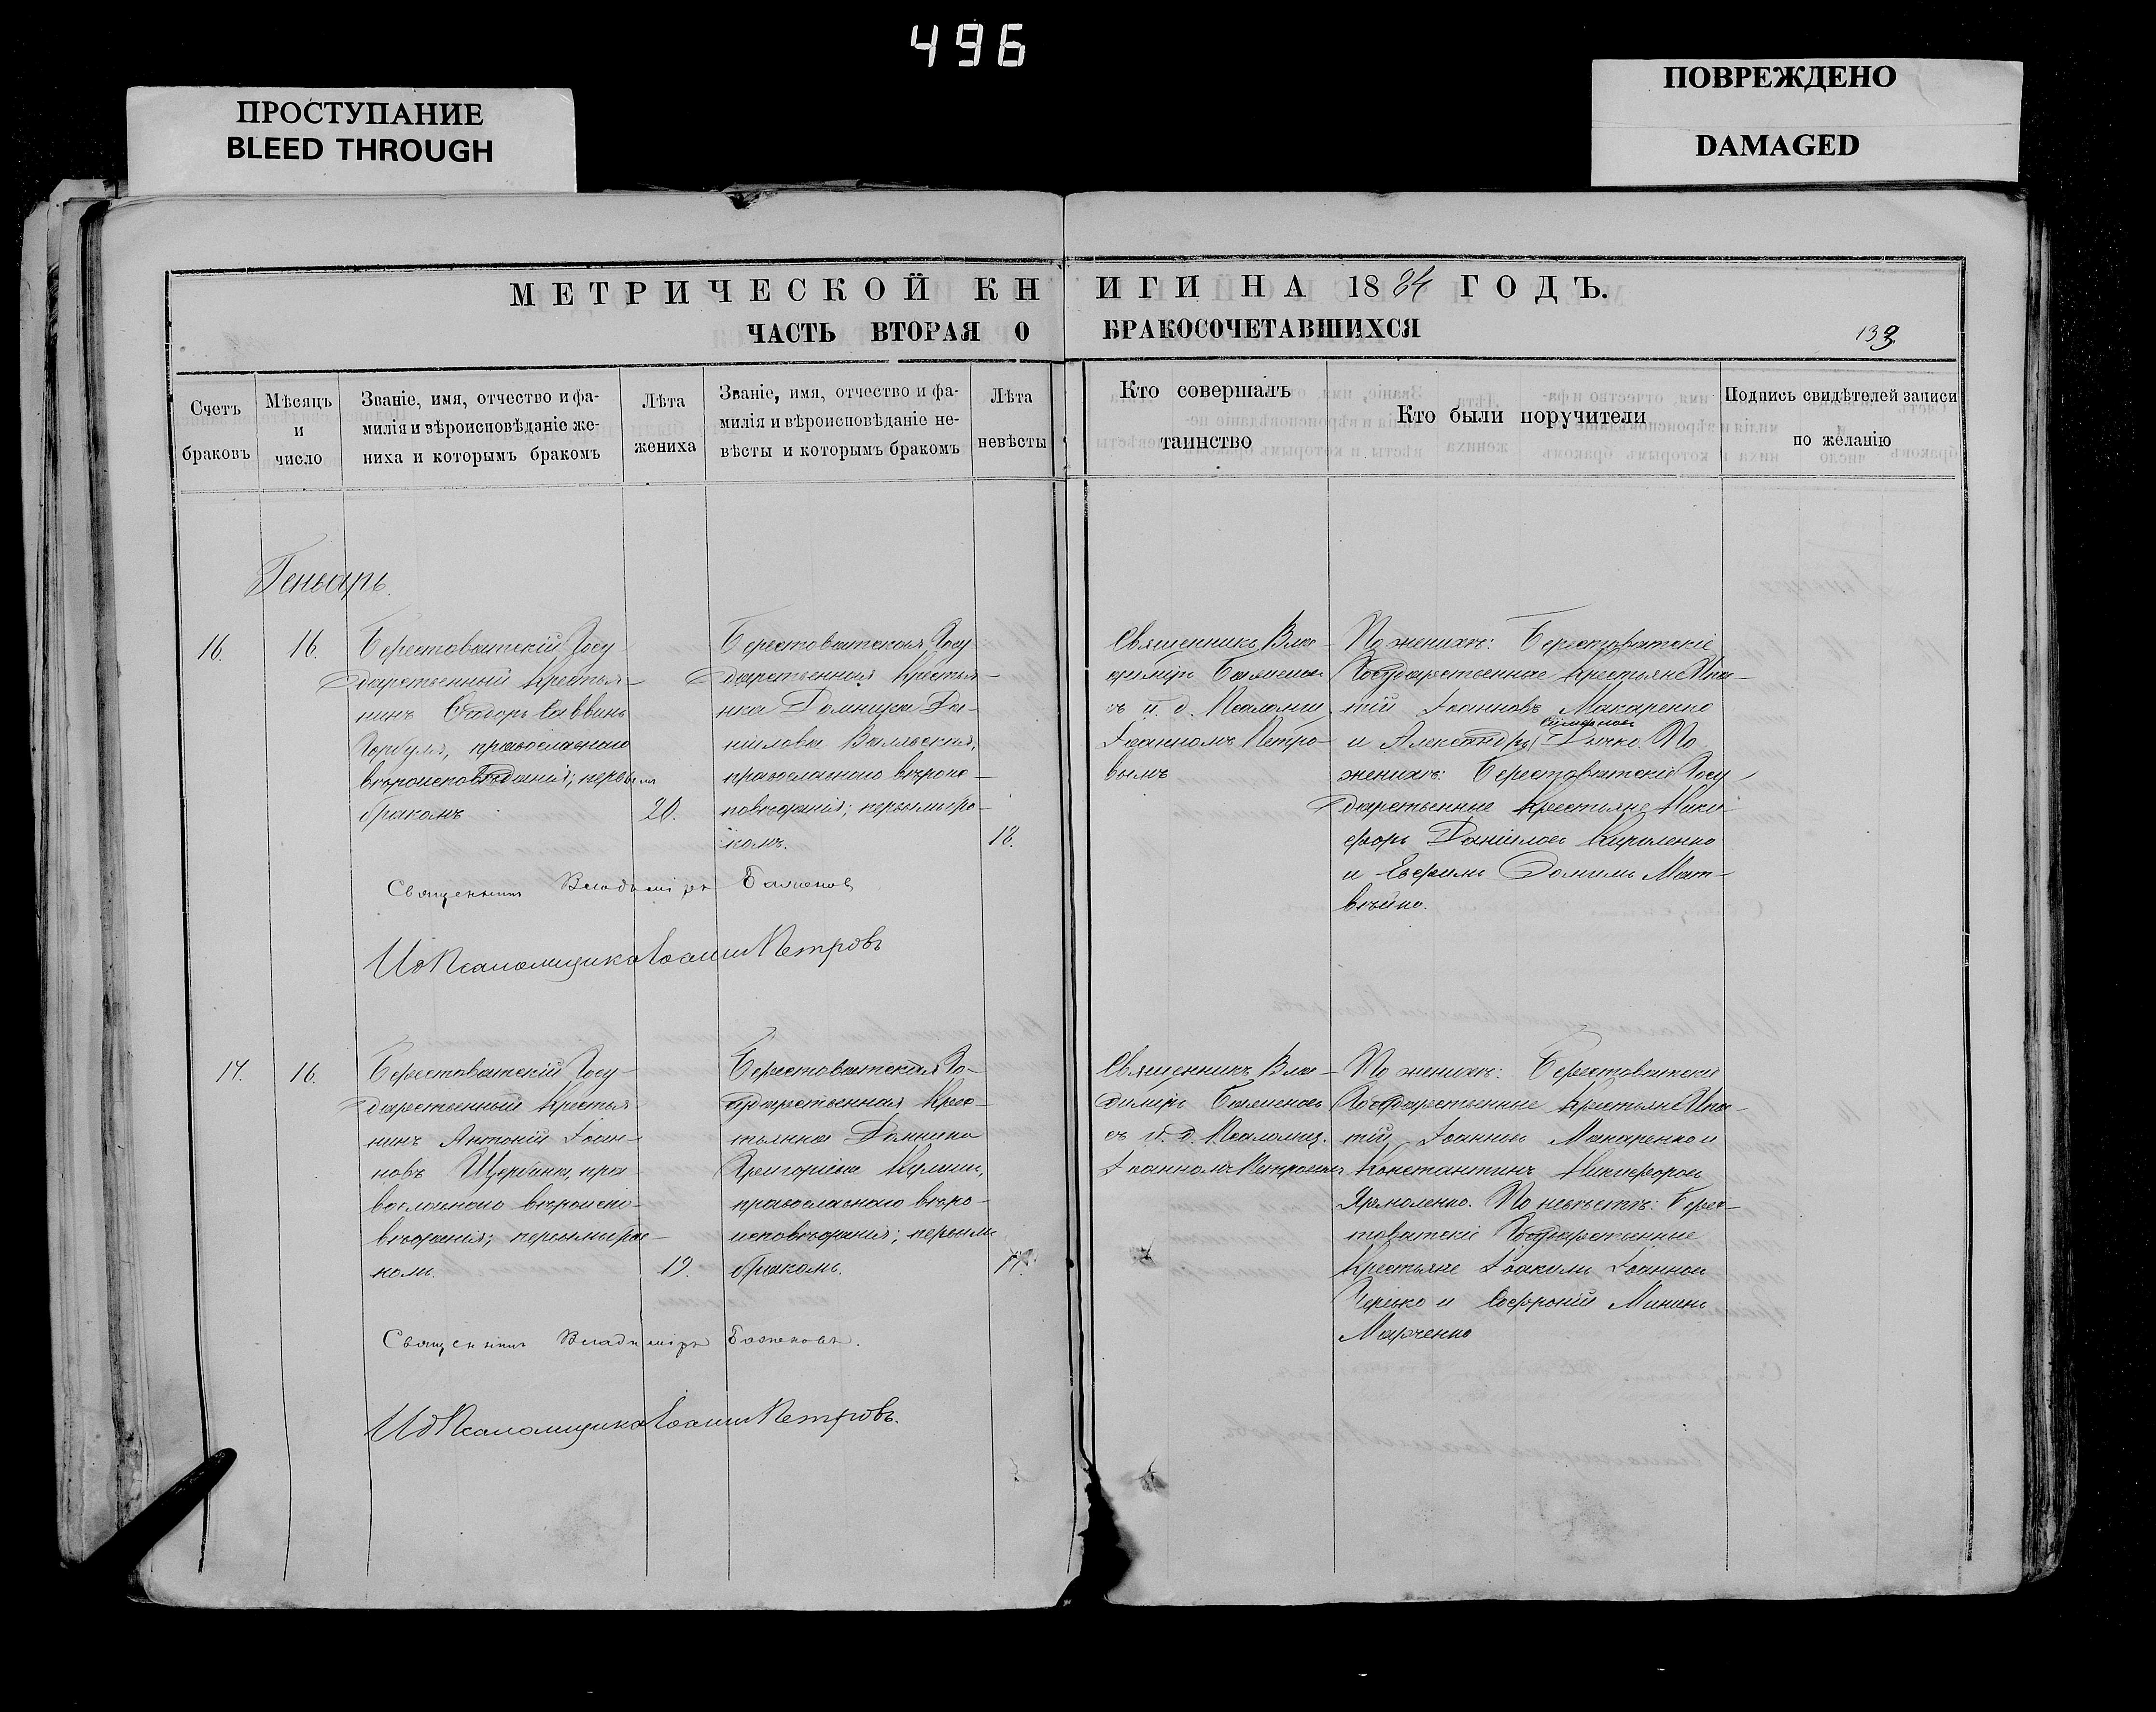 496
ПРОСТУПАНИЕ
BLEED THROUGH
ПОВРЕЖДЕНО
DAMAGED
МЕТРИЧЕСКОЙ КНИГИ НА 1884 ГОДЪ.
ЧАСТЬ ВТОРАЯ О БРАКОСОЧЕТАВШИХСЯ
133
Счетъ
браковъ
Мѣсяцъ
и
число
Званіе, имя, отчество и фа-
милія и вѣроисповѣданіе же-
ниха и которымъ бракомъ
Лѣта
жениха
Званіе, имя, отчество и фа-
милія и вѣроисповѣданіе не-
вѣсты и которымъ бракомъ
Лѣта
невѣсты
Кто совершалъ
таинство
Кто были поручители
Подпись свидѣтелей записи
по желанію
Геньарь.
16.
16.
Берестоватскій Госу-
дарственный Крестья-
нинъ Ѳеодоръ Саввинъ
Горбуля, православнаго
вѣроисповѣданія; первымъ
бракомъ
20.
Берестоватская Госу-
дарственная Крестья-
нка Домникія Да-
нилова
православнаго вѣроис-
повѣданія; первымъ бра-
комъ.
18.
Священникъ Вла-
димиръ Баженовъ
съ и. д. Псаломщ.
Іоанномъ Петро-
вымъ
По женихѣ: Берестоватскіе
Государственные Крестьяне Ипа-
тій Іоанновъ Макаренко
и Александръ Дычко. По
женихѣ: Берестоватскіе Госу-
дарственные Крестьяне Ники-
форъ Даніиловъ Кириленко
и Ефимъ Мат-
вѣйко.
Священникъ Владиміръ Баженовъ
И д Псаломщика Іоаннъ Петровъ
17.
16.
Берестоватскій Госу-
дарственный Крестья-
нинъ Антоній Іоан-
новъ Щербина, пра-
вославнаго вѣроиспо-
вѣданія; первымъ бра-
комъ.
19.
Берестоватская Го-
сударственная Крес-
тьянка Домникія
Григоріева
православнаго вѣро-
исповѣданія; первымъ
бракомъ.
Священникъ Вла-
димиръ Баженовъ
съ и. д. Псаломщ.
Іоанномъ Петровымъ
По женихѣ: Берестоватскіе
Государственные Крестьяне Ипа-
тій Іоанновъ Макаренко и
Константинъ Никифоровъ
Ярмоленко. По невѣстѣ: Берес-
товатскіе Государственные
Крестьяне Іоакимъ Іоанновъ
и Софроній Мининъ
Марченко
Священникъ Владиміръ Баженовъ.
И д Псаломщика Іоаннъ Петровъ.